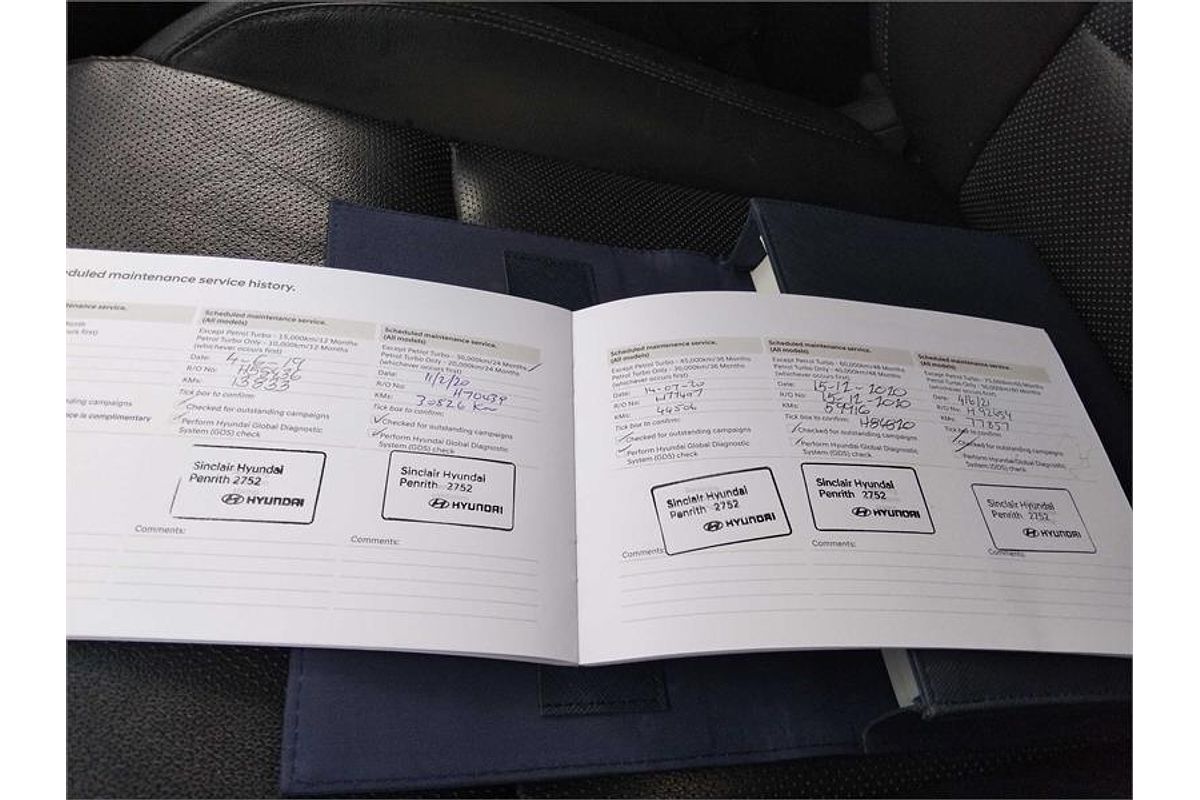 duled maintenance service history.
tenance service.
Month
urs first)
ng campaigns
nce is complimentary
Scheduled maintenance service.
(All models)
Except Petrol Turbo - 15,000km/12 Months
Petrol Turbo Only - 10,000km/12 Months
(whichever occurs first)
Date:
R/O No:
KMs: 13833
Tick box to confirm:
Checked for outstanding campaigns
Perform Hyundai Global Diagnostic
System (GDS) check
Sinclair Hyundai
Penrith 2752
HYUNDAI
Comments:
Scheduled maintenance service.
(All models)
Except Petrol Turbo - 30,000km/24 Months
Petrol Turbo Only - 20,000km/24 Months
(whichever occurs first)
Date: 11/2/20
R/O No: H70439
KMs: 30826 Km
Tick box to confirm:
Checked for outstanding campaigns
Perform Hyundai Global Diagnostic
System (GDS) check
Sinclair Hyundai
Penrith 2752
HYUNDAI
Comments:
Scheduled maintenance service.
(All models)
Except Petrol Turbo - 45,000km/36 Months
Petrol Turbo Only - 30,000km/36 Months
(whichever occurs first)
Date: 14-07-20
R/O No: H77497
KMs: 44506
Tick box to confirm:
Checked for outstanding campaigns
Perform Hyundai Global Diagnostic
System (GDS) check
Sinclair Hyundai
Penrith 2752
HYUNDAI
Comments:
Scheduled maintenance service.
(All models)
Except Petrol Turbo - 60,000km/48 Months
Petrol Turbo Only - 40,000km/48 Months
(whichever occurs first)
Date: 15-12-2020
R/O No: 15-12-2020
KMs: 59916
H84820
Tick box to confirm:
Checked for outstanding campaigns
Perform Hyundai Global Diagnostic
System (GDS) check
Sinclair Hyundai
Penrith 2752
HYUNDAI
Comments:
Scheduled maintenance service.
(All models)
Except Petrol Turbo - 75,000km/60 Months
(whichever occurs first)
Date: 4/6/21
R/O No: H 92454
KMs: 77857
Tick box to confirm:
Checked for outstanding campaigns
Perform Hyundai Global Diagnostic
System (GDS) check
Sinclair Hyundai
Penrith 2752
HYUNDAI
Comments: